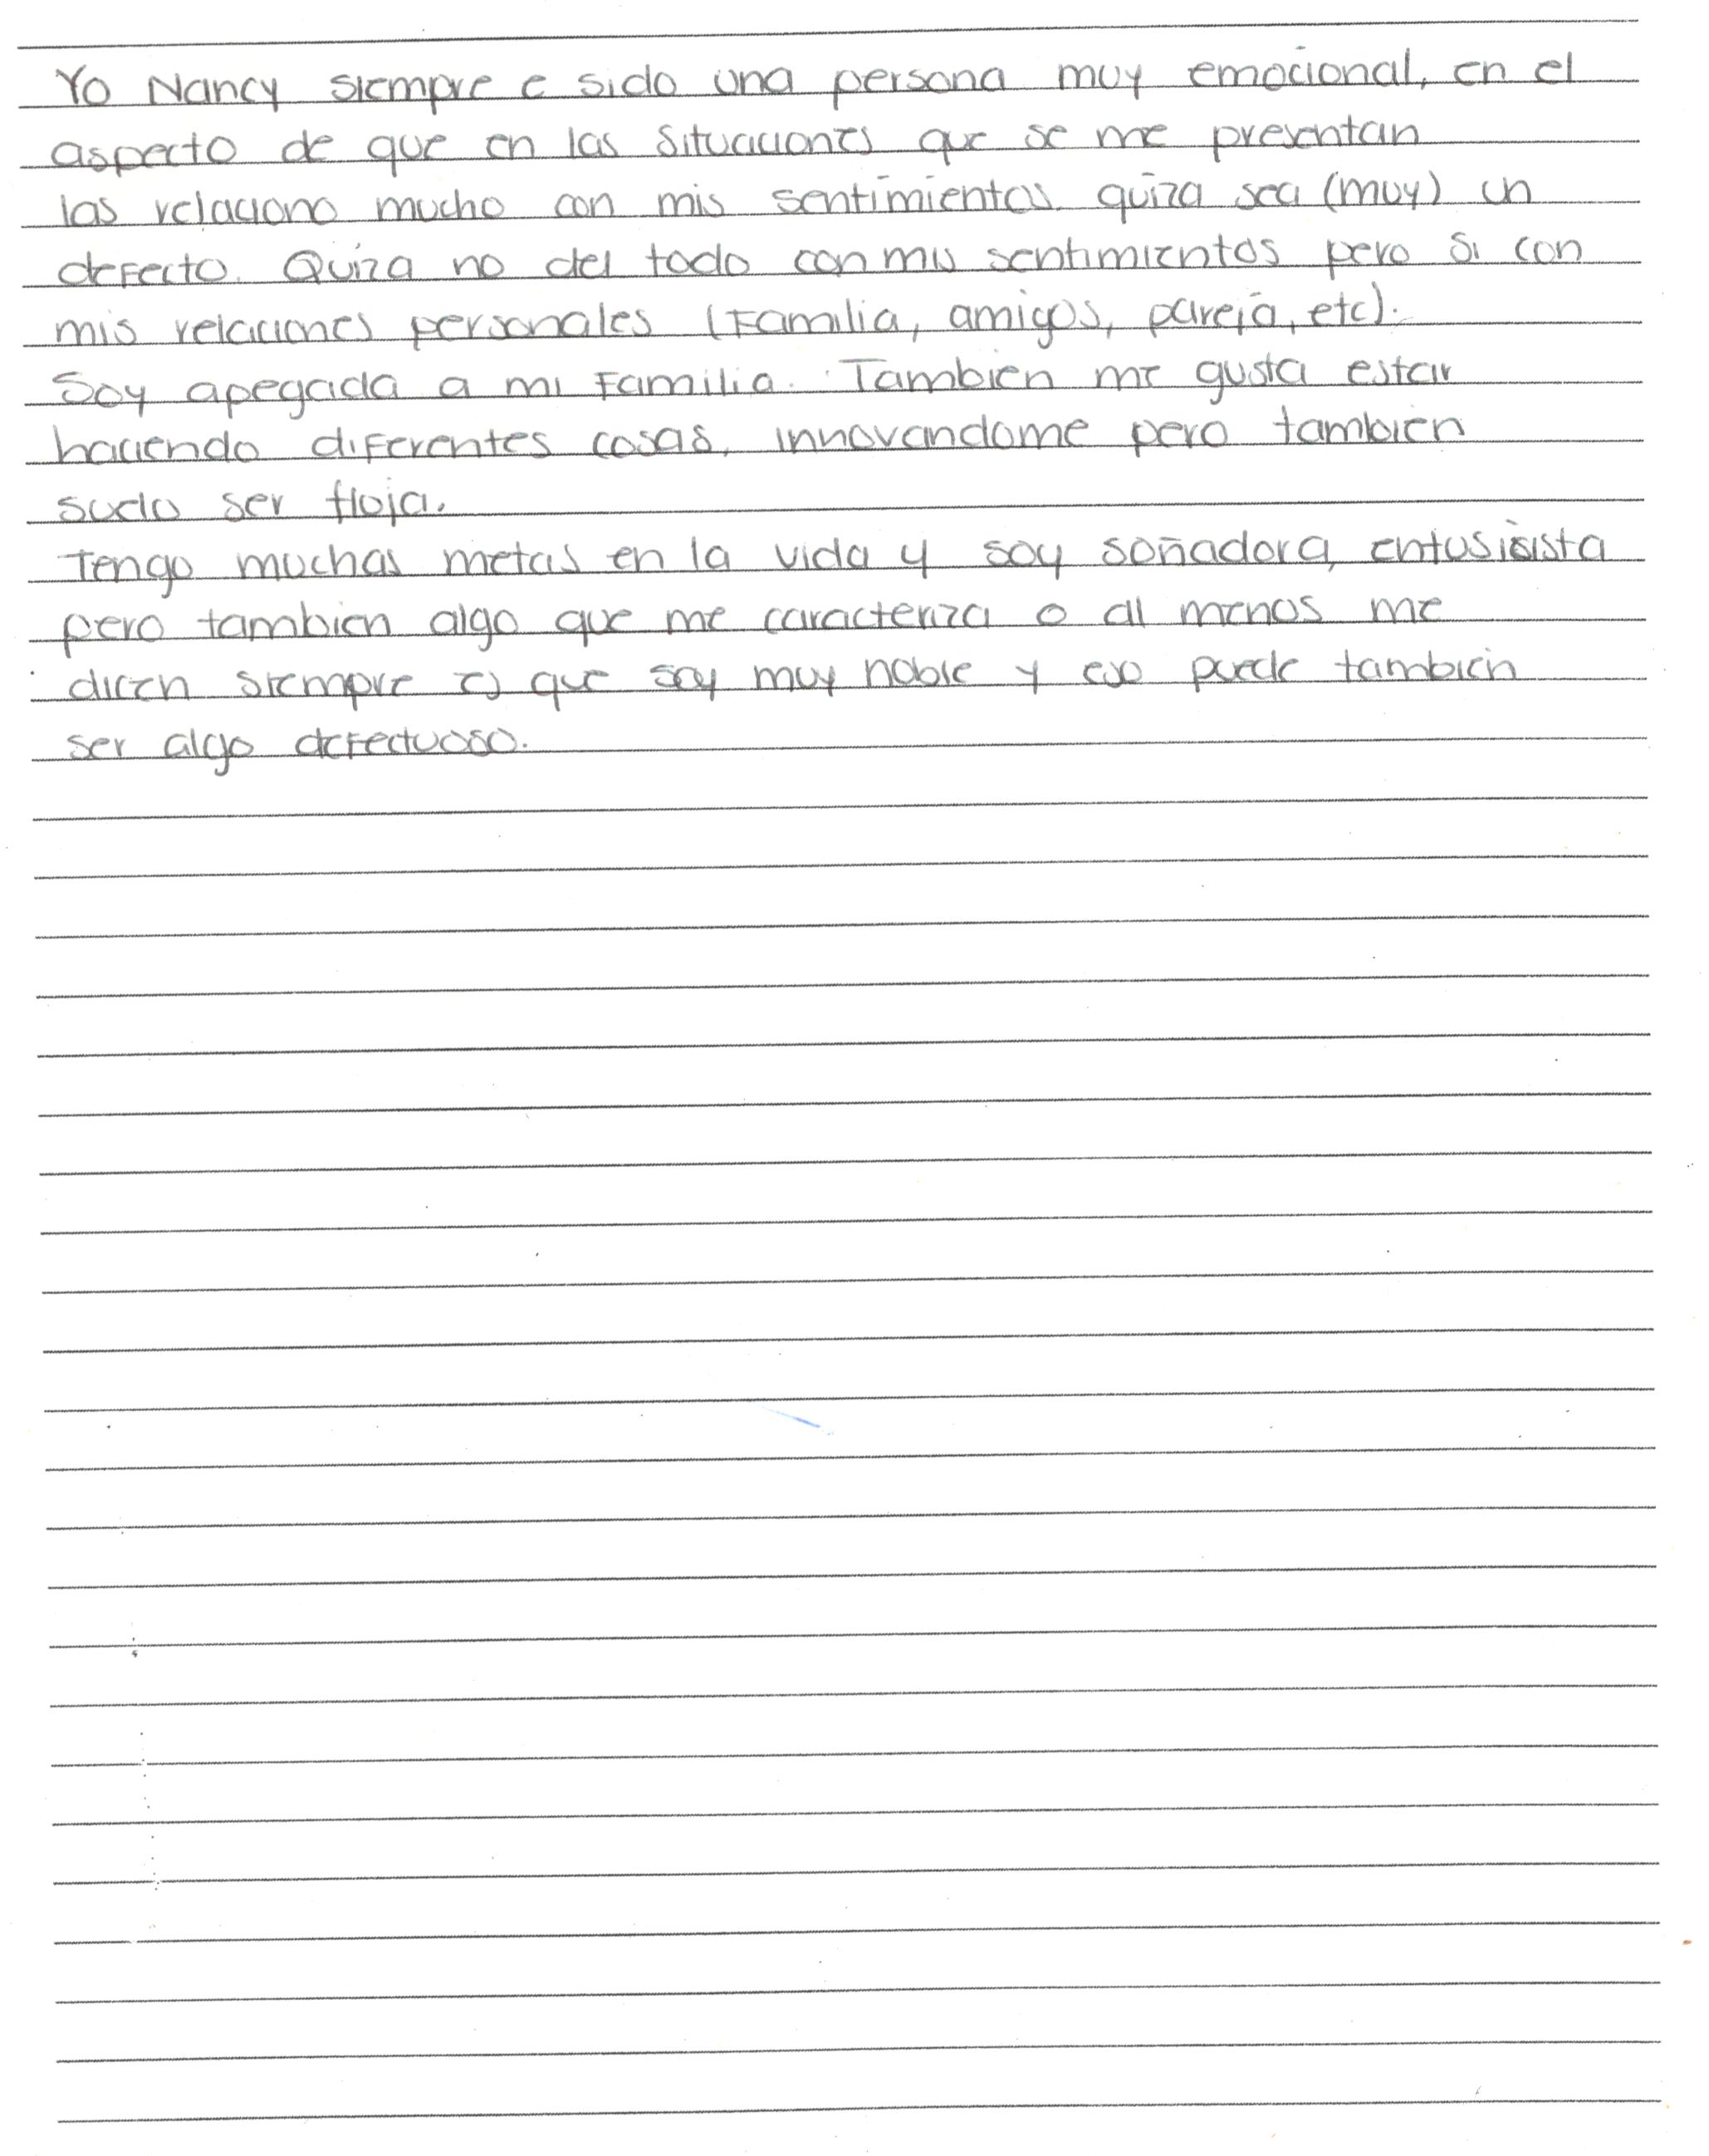 Yo Nancy siempre e sido una persona muy emocional, en el
aspecto de que en las situaciones que se me presentan
las relaciono mucho con mis sentimientos. quiza sea (muy) un
defecto. Quiza no del todo con mis sentimientos pero si con
mis relaciones personales (Familia, amigos, pareja, etc).
Soy apegada a mi Familia. Tambien me gusta estar
haciendo diferentes cosas, innovandome pero tambien
suelo ser floja.
Tengo muchas metas en la vida y soy soñadora, entusiasta
pero tambien algo que me caracteriza o al menos me
dicen siempre es que soy muy noble y eso puede tambien
ser algo defectuoso.